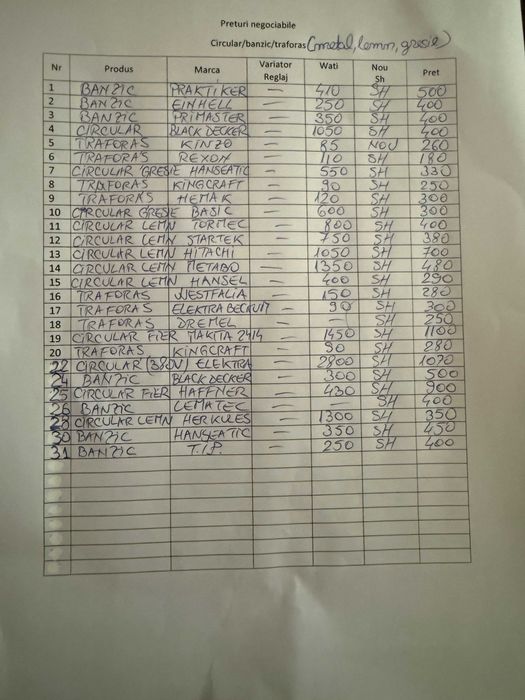 Preturi negociabile
Circular/banzic/traforas (metal, lemn, gresie)
Nr Produs Marca Variator Reglaj Wati Nou Sh Pret
1 BANZIC PRAKTIKER — 410 SH 500
2 BANZIC EINHELL — 250 SH 400
3 BANZIC PRIMASTER — 350 SH 400
4 CIRCULAR BLACK DECKER — 1050 SH 400
5 TRAFORAS KINZO — 85 NOU 260
6 TRAFORAS REXON — 110 SH 180
7 CIRCULAR GRESIE HANSEATIC — 550 SH 330
8 TRAFORAS KINGCRAFT — 90 SH 250
9 TRAFORAS HEMAK — 120 SH 300
10 CIRCULAR GRESIE BASIC — 600 SH 300
11 CIRCULAR LEMN TORMEC — 800 SH 400
12 CIRCULAR LEMN STARTEK — 750 SH 380
13 CIRCULAR LEMN HITACHI — 1050 SH 700
14 CIRCULAR LEMN METABO — 1350 SH 480
15 CIRCULAR LEMN HANSEL — 400 SH 290
16 TRAFORAS WESTFALIA — 150 SH 280
17 TRAFORAS ELEKTRA BECKUM — 90 SH 300
18 TRAFORAS DREMEL — — SH 250
19 CIRCULAR FIER MAKITA 2414 — 1450 SH 1100
20 TRAFORAS KINGCRAFT — 90 SH 280
22 CIRCULAR (380V) ELEKTRA — 2800 SH 1070
24 BANZIC BLACK DECKER — 300 SH 500
25 CIRCULAR FIER HAFFNER — 430 SH 900
26 BANZIC LEMATEC — — SH 400
28 CIRCULAR LEMN HERKULES — 1300 SH 350
30 BANZIC HANSEATIC — 350 SH 450
31 BANZIC T.I.P. — 250 SH 400